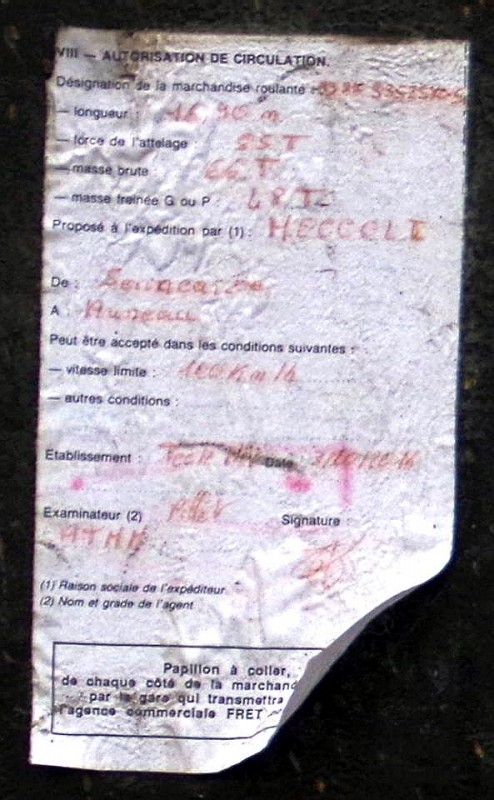 VIII — AUTORISATION DE CIRCULATION.
Désignation de la marchandise roulante :
— longueur : 16,90 m
— force de l'attelage 85T
— masse brute : 66 T
— masse freinée G ou P : 48 T
Proposé à l'expédition par (1) : HECCELI
De :
A : Auneau
Peut être accepté dans les conditions suivantes :
— vitesse limite : 100 Km/h
— autres conditions :
Etablissement : Date
Examinateur (2) Signature :
(1) Raison sociale de l'expéditeur
(2) Nom et grade de l'agent
Papillon à coller,
de chaque côté de la marchand
par la gare qui transmettra
l'agence commerciale FRET